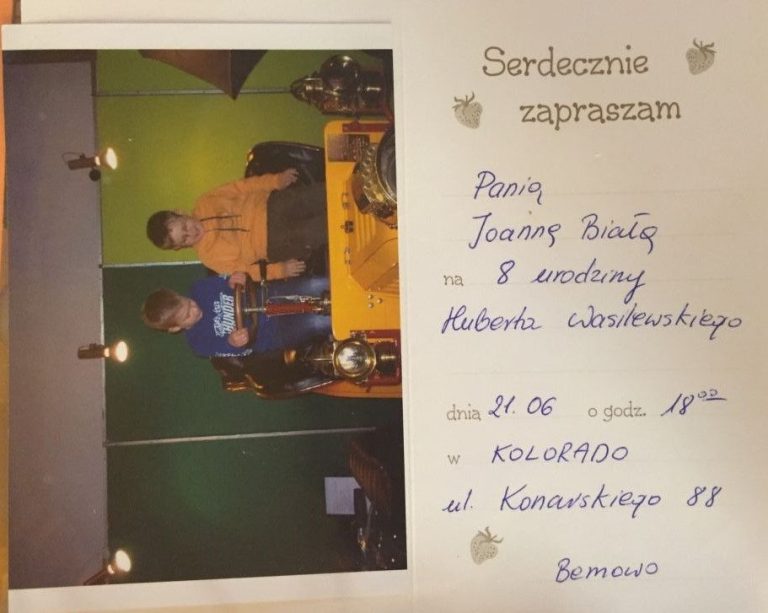 Serdecznie
zapraszam
Panią
Joannę Białą
na 8 urodziny
Huberta Wasilewskiego
dnia 21.06 o godz. 18⁰⁰
w KOLORADO
ul. Konarskiego 88
Bemowo
THUNDER